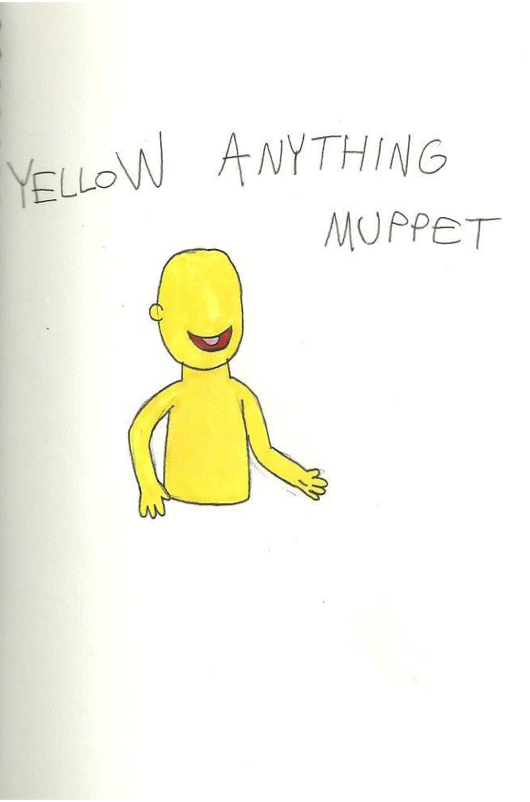 YELLOW ANYTHING
MUPPET